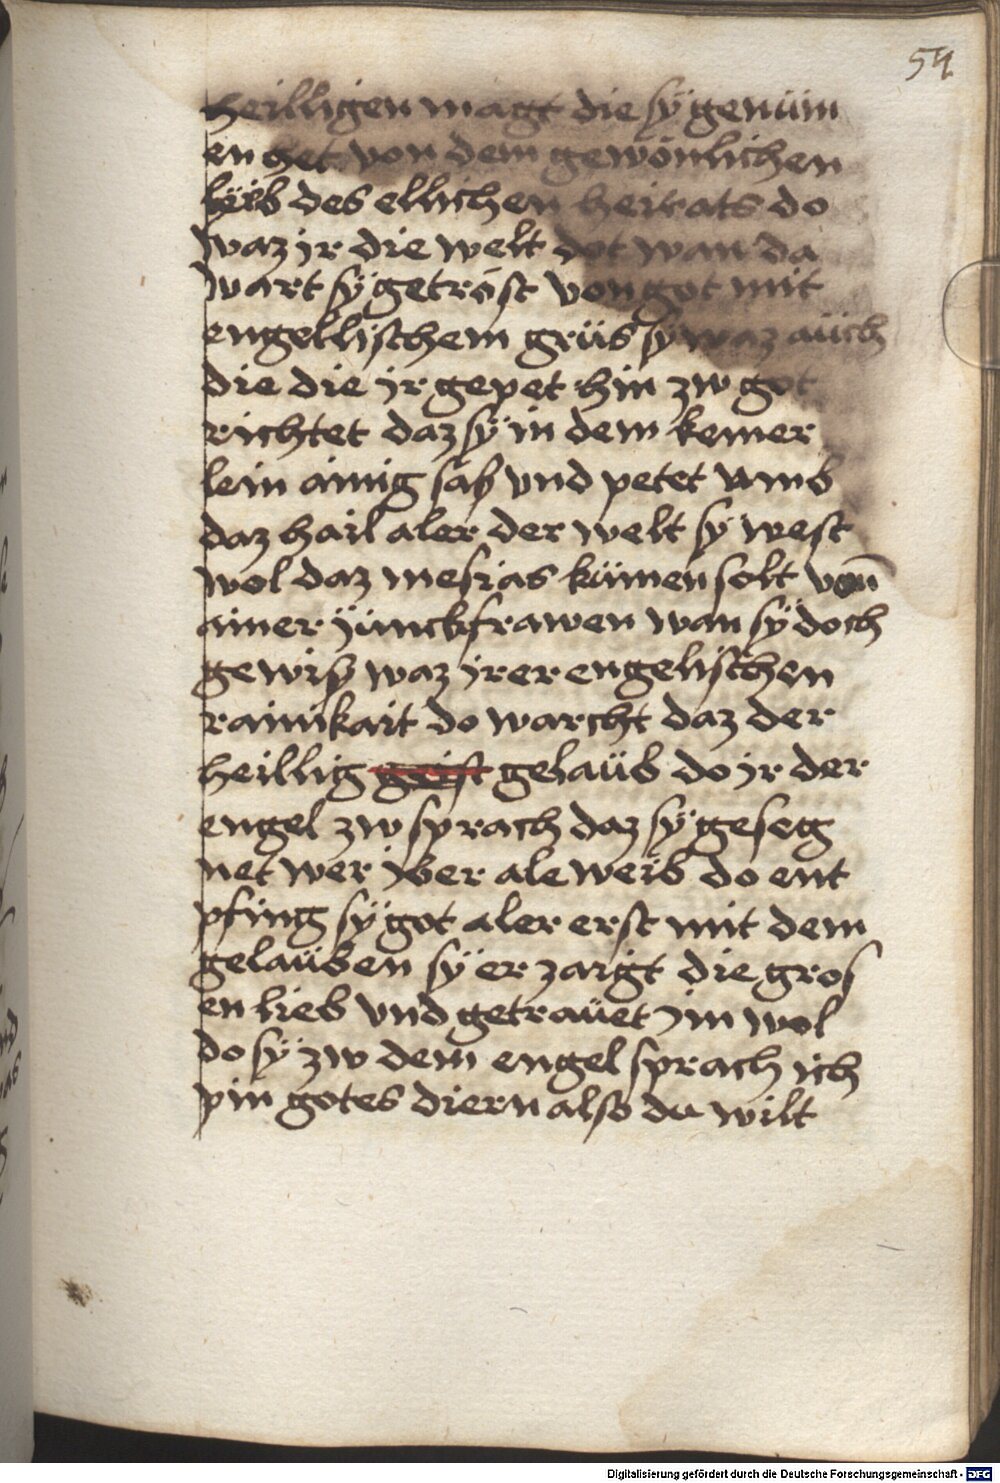 54
heilligen magt die sÿ genüm
en het von dem gewönlichen
leib des ellichen heirats do
waz ir die welt dot wan da
wart sÿ getröst von got mit
engellischem grüs sÿ waz aüch
die die ir gepet hin zw got
richtet daz sÿ in dem kemer
lein ainig saß vnd petet vmb
daz hail aler der welt sÿ west
wol daz mesias kümen solt von̄
ainer jünckfrawen wan sÿ doch
gewiß waz irer engelischen
rainikait do warcht daz der
heillig geist gelaüb do ir der
engel zw sprach daz sÿ geseg
net wer jber ale weib do ent
pfing sÿ got aler erst mit dem
gelaüben sÿ er zaigt die gros
en lieb vnd getraüet im wol
do sÿ zw dem engel sprach ich
pin gotes diern also du wilt
Digitalisierung gefördert durch die Deutsche Forschungsgemeinschaft - DFG